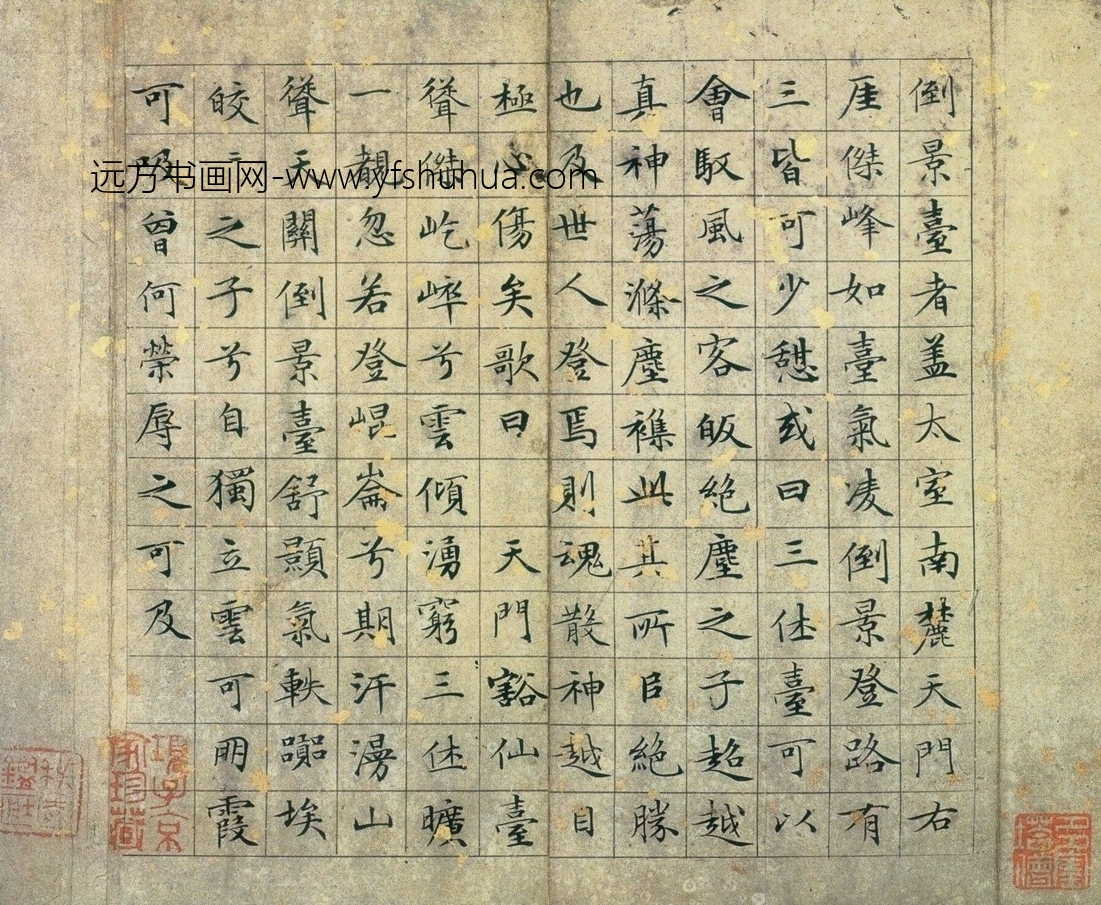 倒景臺者盖太室南麓天門右
厓傑峰如臺氣凌倒景登路有
三皆可少憇或曰三休臺可以
會馭風之客皈絶塵之子超越
真神蕩滌塵襍此其所㠯絶勝
也及世人登焉則魂散神越目
極心傷矣歌曰 天門豁仙臺
聳傑屹崒兮雲傾湧窮三休曠
一覩忽若登崐崙兮期汗漫山
聳天關倒景臺舒顥氣軼囂埃
皎々之子兮自獨立雲可朋霞
可吸曾何榮辱之可及
項子京家珍藏
远方书画网-www.yfshuhua.com